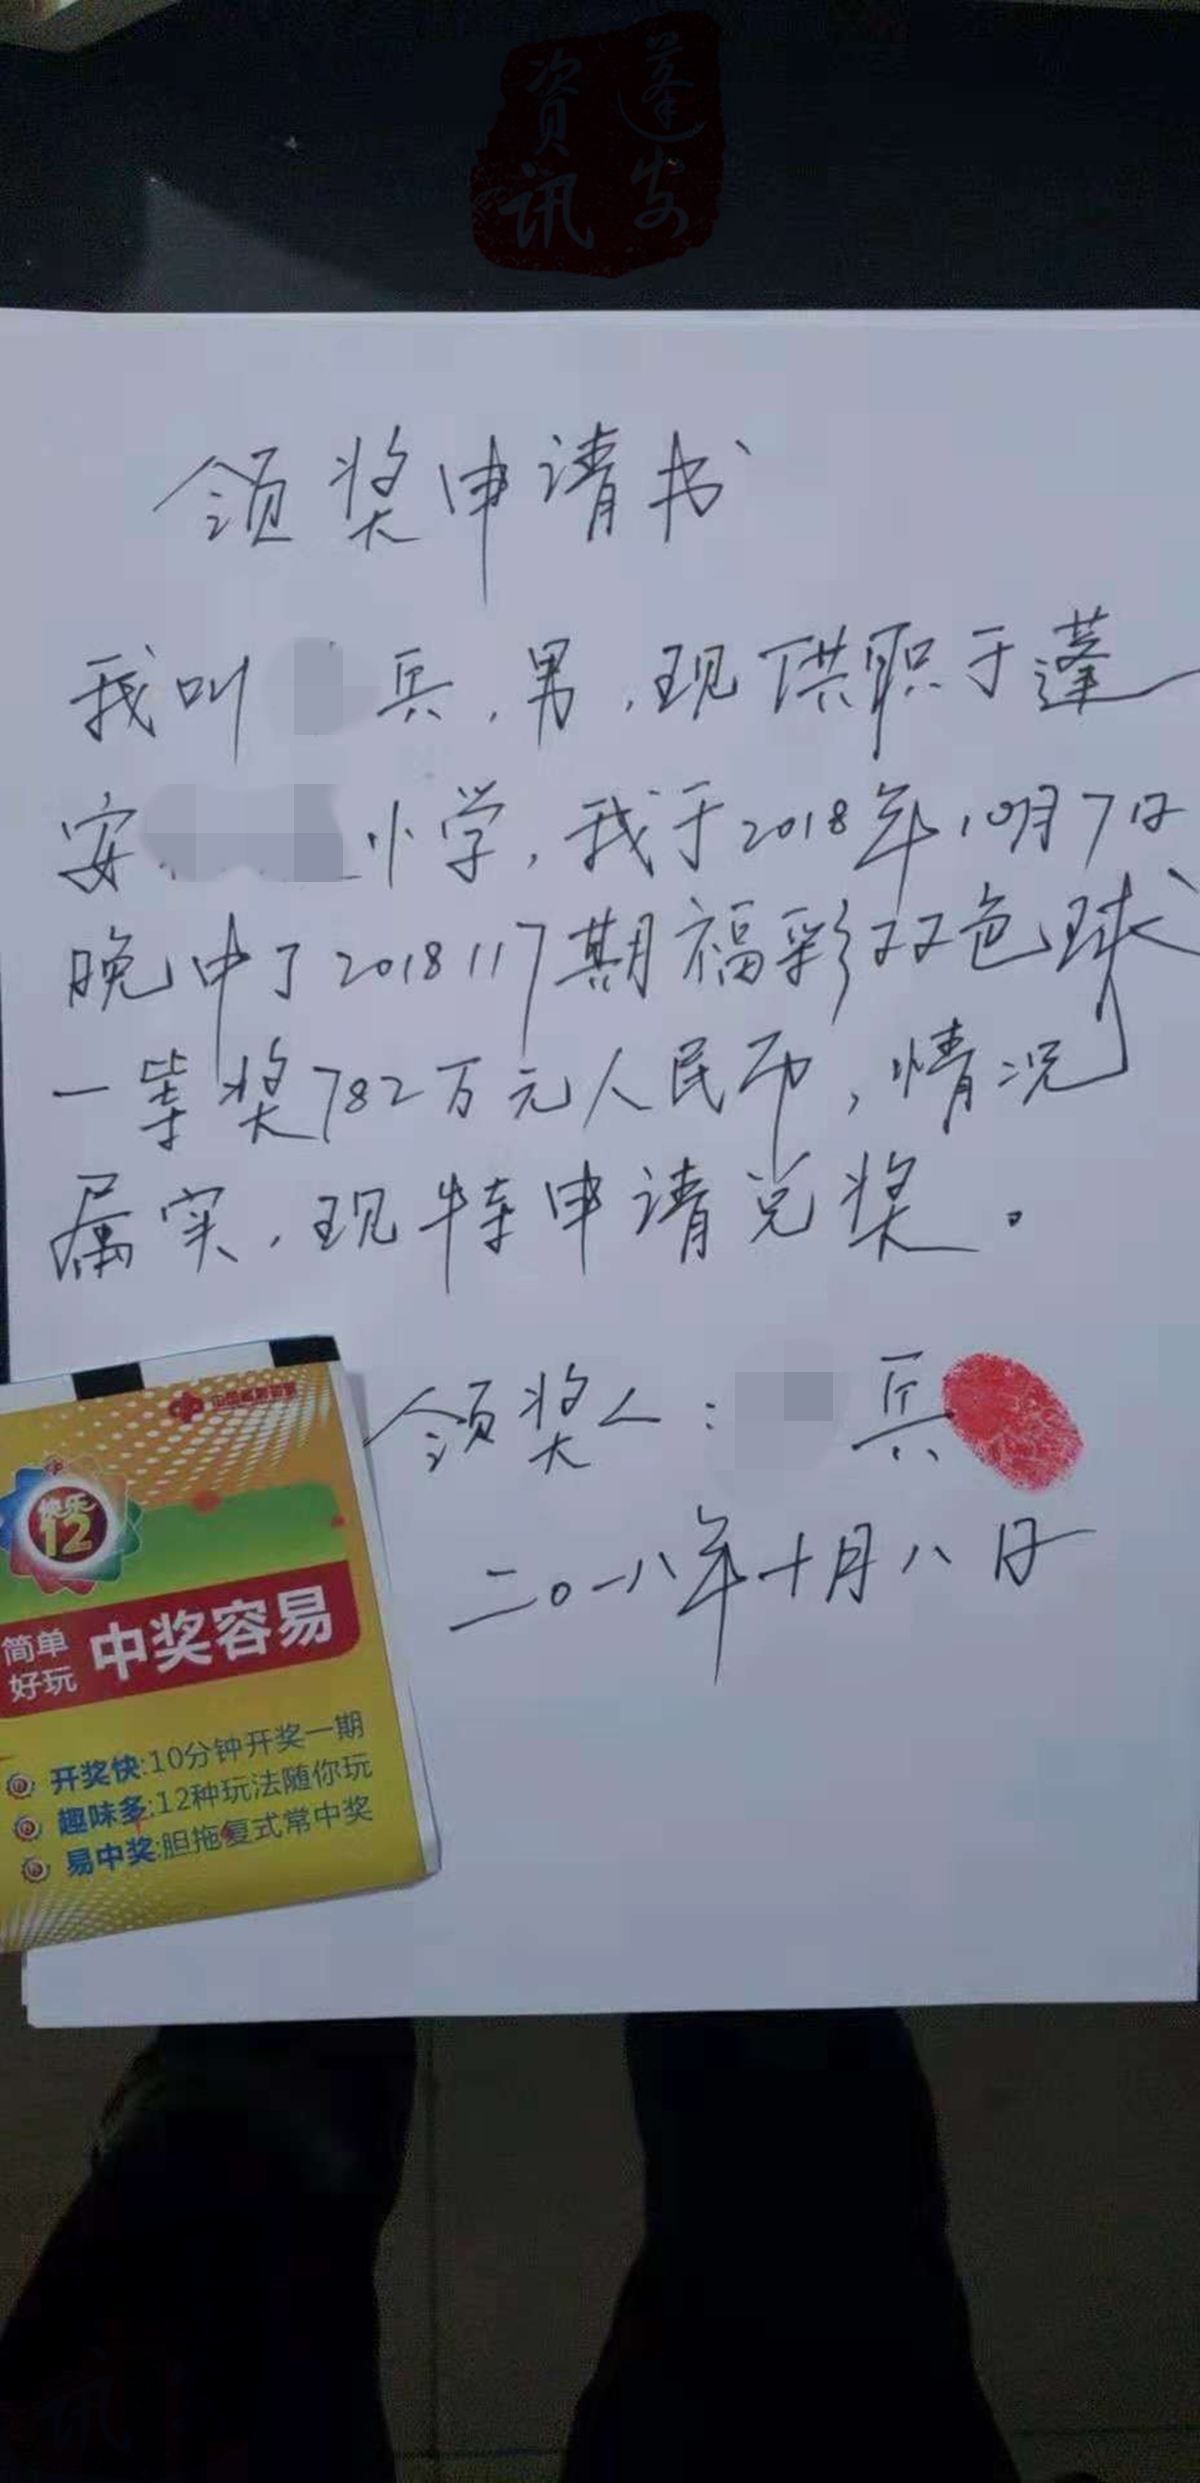 蓬安
资讯
领奖申请书
我叫 兵,男,现供职于蓬
安 小学,我于2018年10月7日
晚中了2018117期福彩双色球
一等奖782万元人民币,情况
属实,现特申请兑奖。
领奖人: 兵
二〇一八年十月八日
快乐
12
简单
好玩
中奖容易
开奖快:10分钟开奖一期
趣味多:12种玩法随你玩
易中奖:胆拖复式常中奖
讯